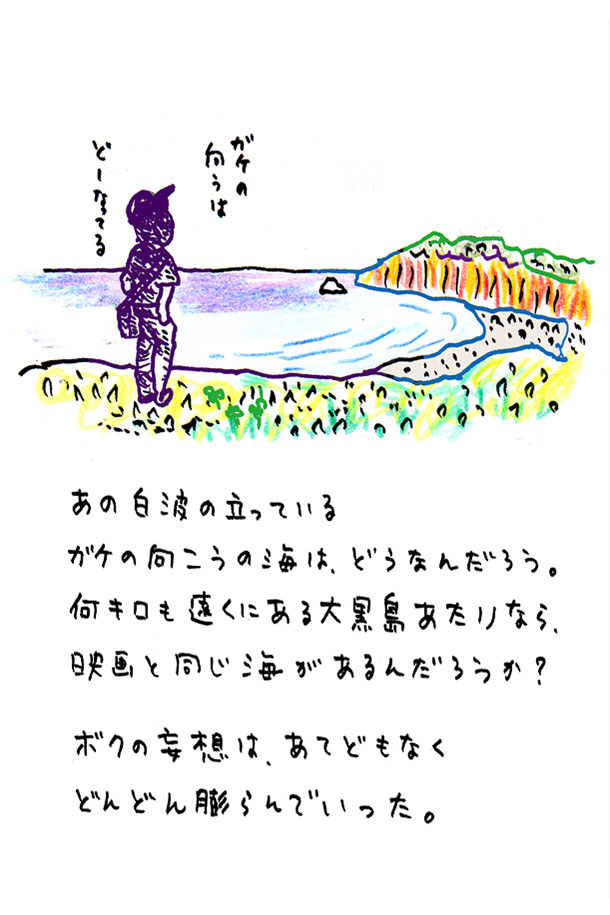 ガケの
向うは
どーなってる
あの白波の立っている
ガケの向こうの海は、どうなんだろう。
何キロも遠くにある大黒島あたりなら、
映画と同じ海があるんだろうか?
ボクの妄想は、あてどもなく
どんどん膨らんでいった。